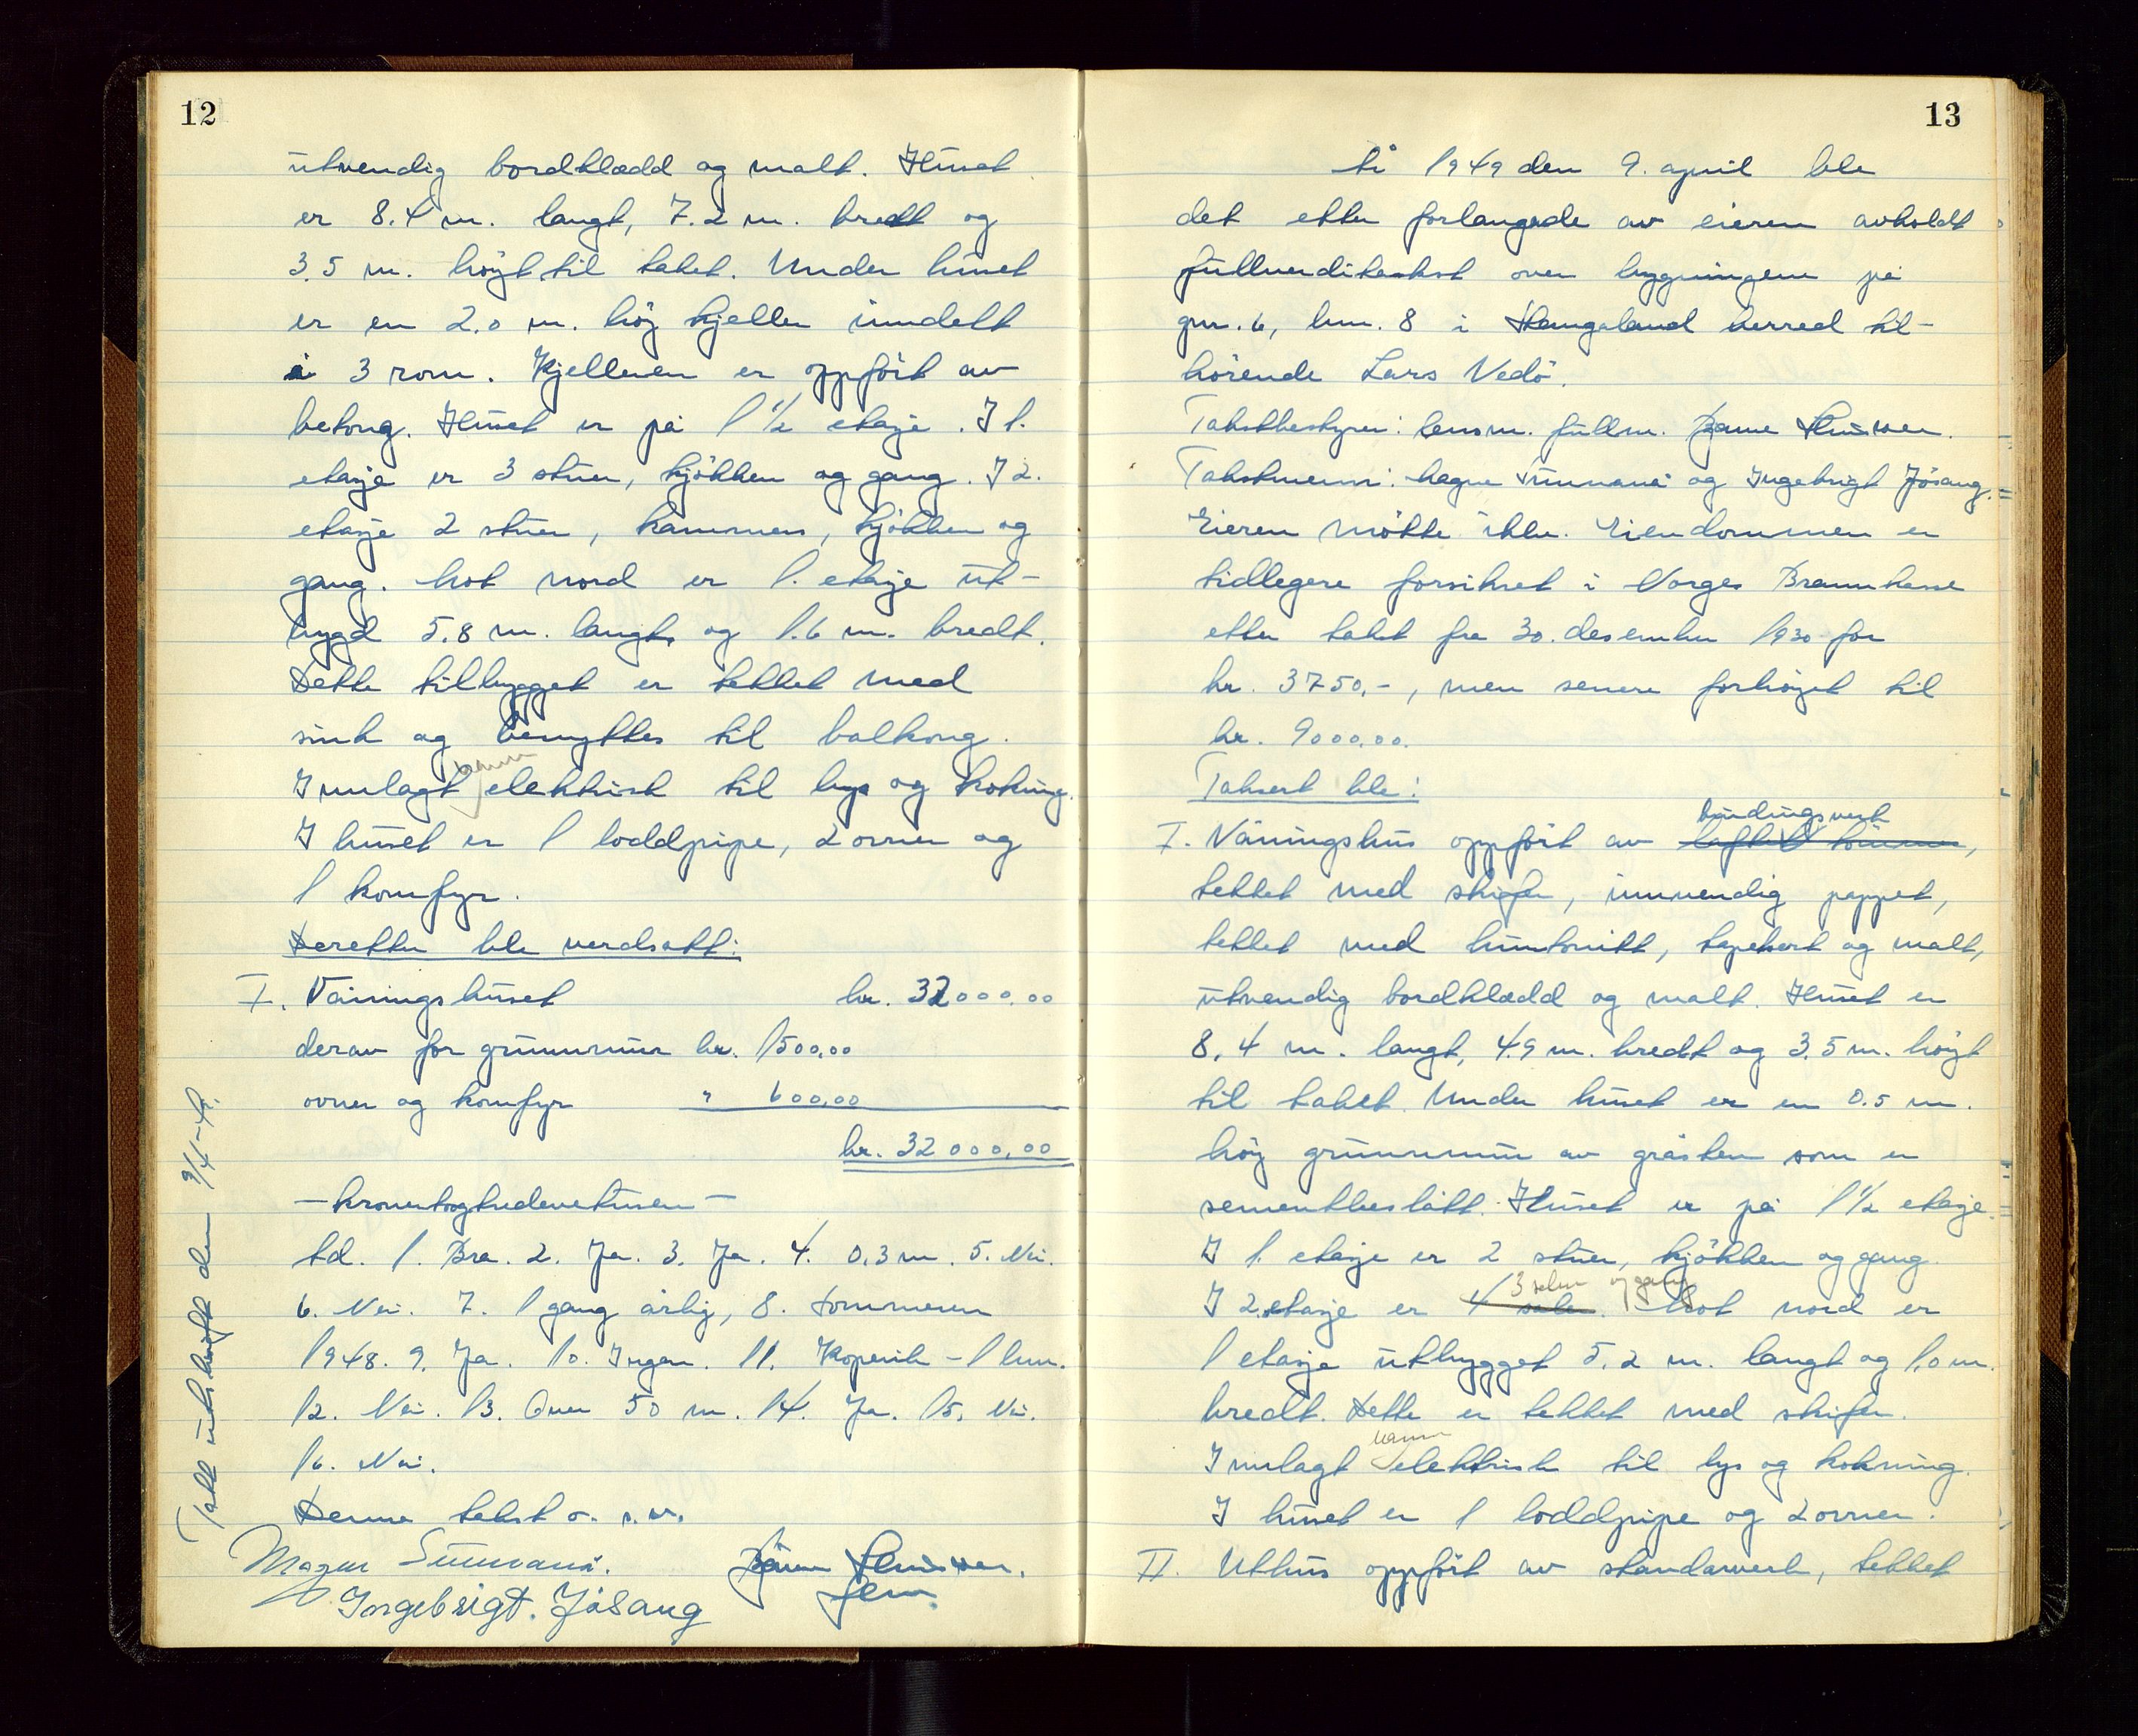 12
utvendig bordklædd og malt. Huset
er 8.4 m. langt, 7.2 m. bredt og
3.5 m. høyt til taket. Under huset
er en 2.0 m. høy kjeller inndelt
i 3 rom. Kjelleren er oppført av
betong. Huset er på 1 1/2 etasje. I 1.
etasje er 3 stuer, kjøkken og gang. I 2.
etasje 2 stuer, kammers, kjøkken og
gang. Mot nord er 1. etasje ut-
bygd 5.8 m. langt og 1.6 m. bredt.
Dette tilbygget er tekket med
sink og benyttes til balkong.
vann
Innlagt elektrisk til lys og koking.
I huset er 1 loddpipe, 2 ovner og
1 komfyr.
Deretter ble verdsatt:
I. Våningshuset kr. 32000,00
derav for grunnmur kr. 1500,00
ovner og komfyr " 600,00
kr. 32000,00
- kronertogtredevetusen -
td. 1. Bra. 2. Ja. 3. Ja. 4. 0.3 m. 5. Nei.
6. Nei. 7. 1 gang årlig, 8. Sommeren
1948. 9. Ja. 10. Ingen. 11. Kopervik - 1 km.
12. Nei. 13. Over 50 m. 14. Ja. 15. Nei.
16. Nei.
Denne takst o. s. v.
Magne Sunnanå.
Ingebrigt. Jøsang
Takst utskrift den 9/4-
13
År 1949 den 9. april ble
det etter forlangende av eieren avholdt
fullverditakst over bygningene på
gnr. 6, bnr. 8 i Stangaland herred til-
hørende Lars Vedø.
Takstbestyrer: lensm. fullm.
Takstmenn: Magne Sunnanå og Ingebrigt Jøsang.
Eieren møtte ikke. Eiendommen er
tidlegere forsikret i Norges Brannkasse
etter takst fra 30. desember 1930 for
kr. 3750.-, men senere forhøyet til
kr. 9000,00.
Taksert ble:
bindingsverk
I. Våningshus oppført av laftet tømmer,
tekket med skifer, innvendig pappet,
tekket med huntonitt, tapetsert og malt,
utvendig bordklædd og malt. Huset er
8,4 m. langt, 4.9 m. bredt og 3.5 m. høyt
til taket. Under huset er en 0.5 m.
høy grunnmur av gråsten som er
sementbeslått. Huset er på 1 1/2 etasje.
I 1. etasje er 2 stuer, kjøkken og gang.
3 saler og gang
I 2. etasje er 4 saler. Mot nord er
1 etasje utbygget 5.2 m. langt og 1.0 m.
bredt. Dette er tekket med skifer.
vann
Innlagt elektrisk til lys og kokning.
I huset er 1 loddpipe og 2 ovner.
II. Uthus oppført av standarverk, tekket